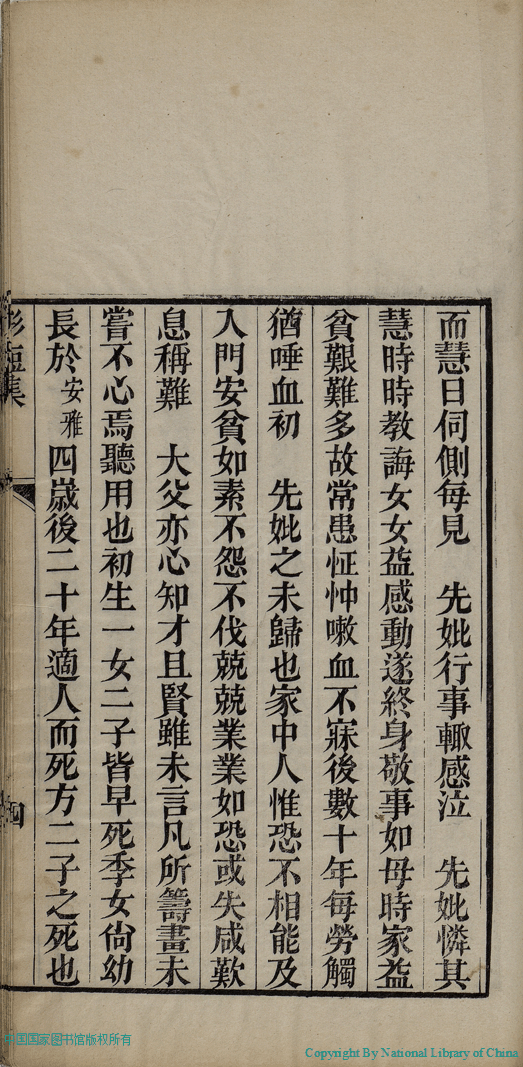 而慧日伺側每見　先妣行事輙感泣　先妣憐其
慧時時教誨女女益感動遂終身敬事如母時家益
貧艱難多故常患怔忡嗽血不寐後數十年每勞觸
猶唾血初　先妣之未歸也家中人惟恐不相能及
入門安貧如素不怨不伐兢兢業業如恐或失咸歎
息稱難　大父亦心知才且賢雖未言凡所籌畫未
嘗不心焉聽用也初生一女二子皆早死季女尙幼
長於安雅四歲後二十年適人而死方二子之死也
集
四
国国家图书馆版权所有
Copyright By National Library of China